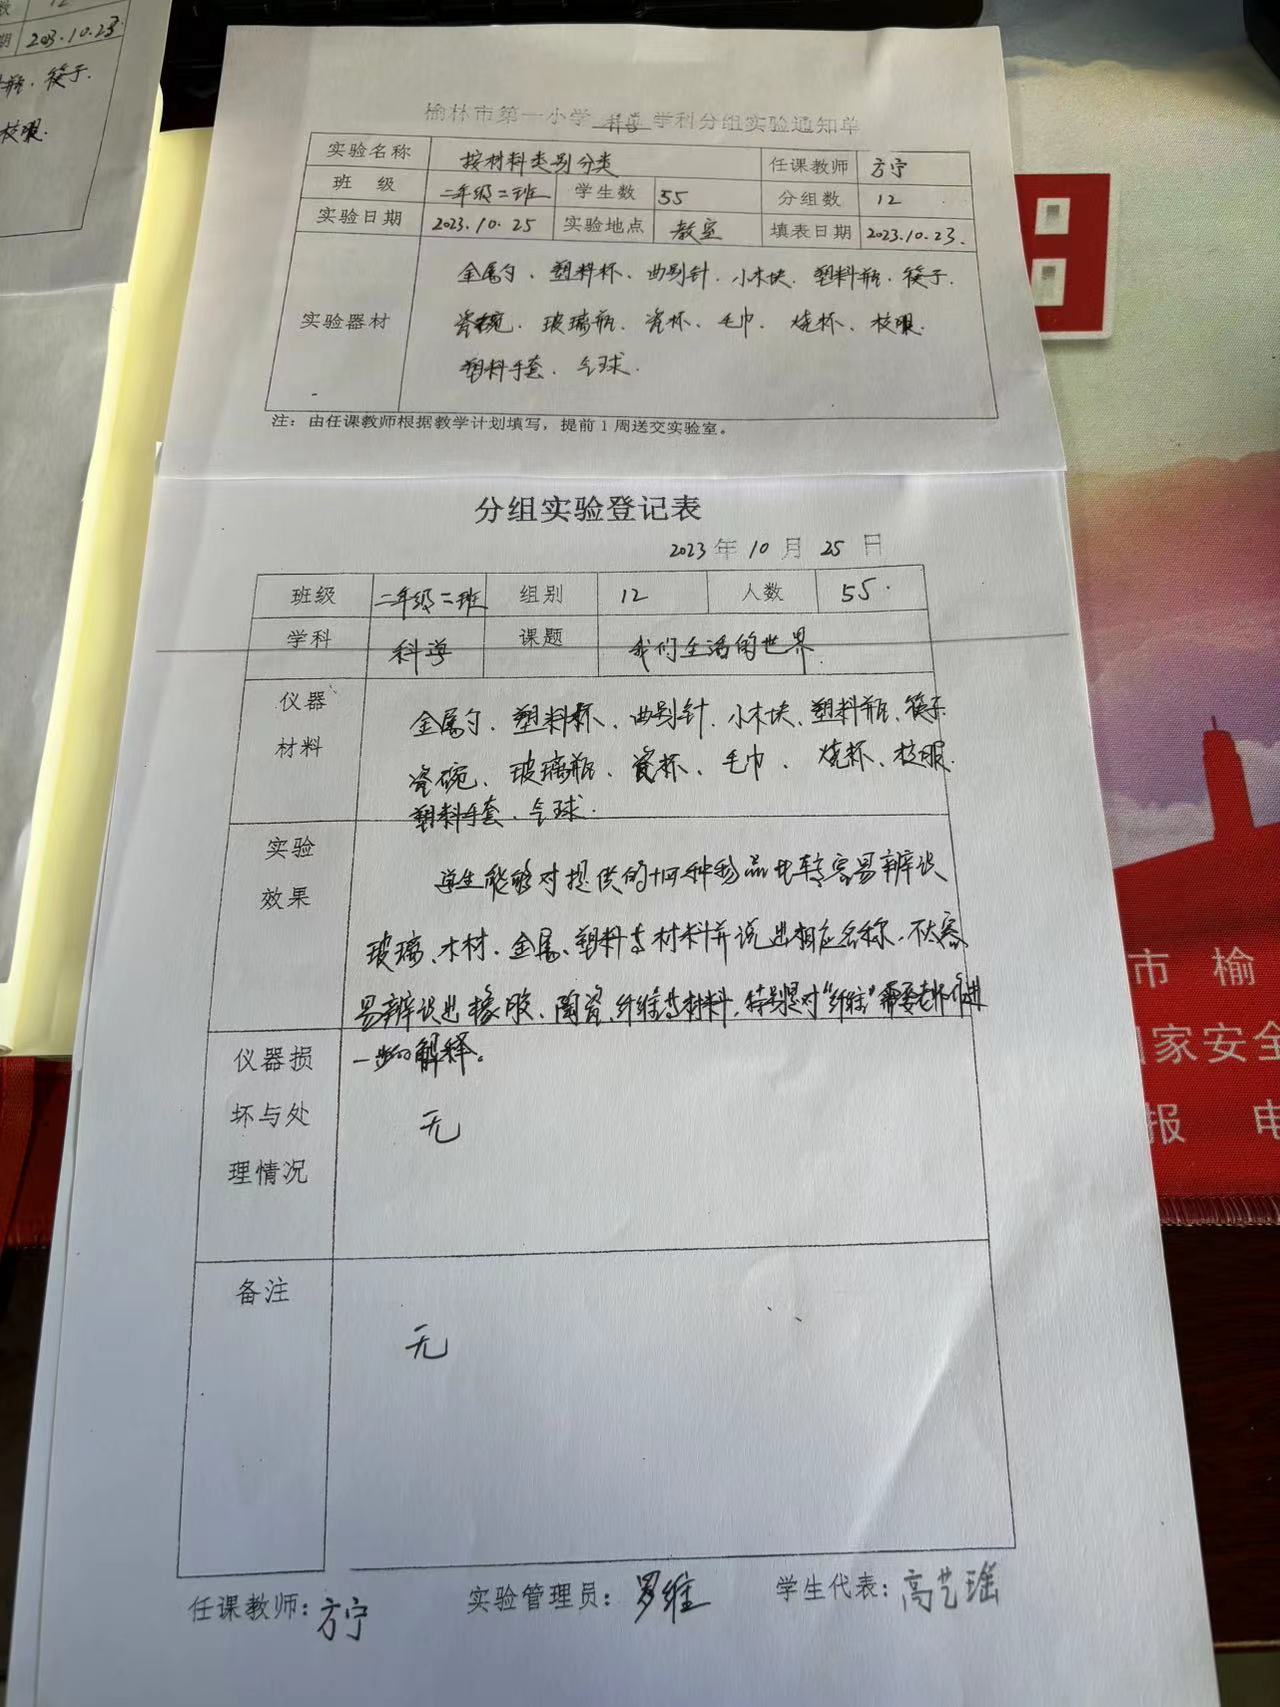 数 12
期 2023.10.23
料瓶、筷子.
校服.
榆林市第一小学 科学 学科分组实验通知单
实验名称 按材料类别分类 任课教师 方宁
班 级 二年级二班 学生数 55 分组数 12
实验日期 2023.10.25 实验地点 教室 填表日期 2023.10.23.
金属勺、塑料杯、曲别针、小木块、塑料瓶、筷子.
实验器材 瓷碗、玻璃瓶、瓷杯、毛巾、烧杯、校服.
塑料手套、气球.
注：由任课教师根据教学计划填写，提前1周送交实验室。
分组实验登记表
2023 年 10 月 25 日
班级 二年级二班 组别 12 人数 55.
学科 科学 课题 我们生活的世界.
仪器 金属勺、塑料杯、曲别针、小木块、塑料瓶、筷子
材料 瓷碗、玻璃瓶、瓷杯、毛巾、烧杯、校服.
塑料手套、气球.
实验
效果 学生能够对提供的十四种物品比较容易辨识
玻璃、木材、金属、塑料等材料并说出相应名称，不太容
易辨识出橡胶、陶瓷、纤维等材料，特别是对“纤维”需要老师进
一步的解释。
仪器损
坏与处 无
理情况
备注
无
任课教师：方宁 实验管理员：罗维 学生代表：高艺瑶
市 榆
国家安全
报 电